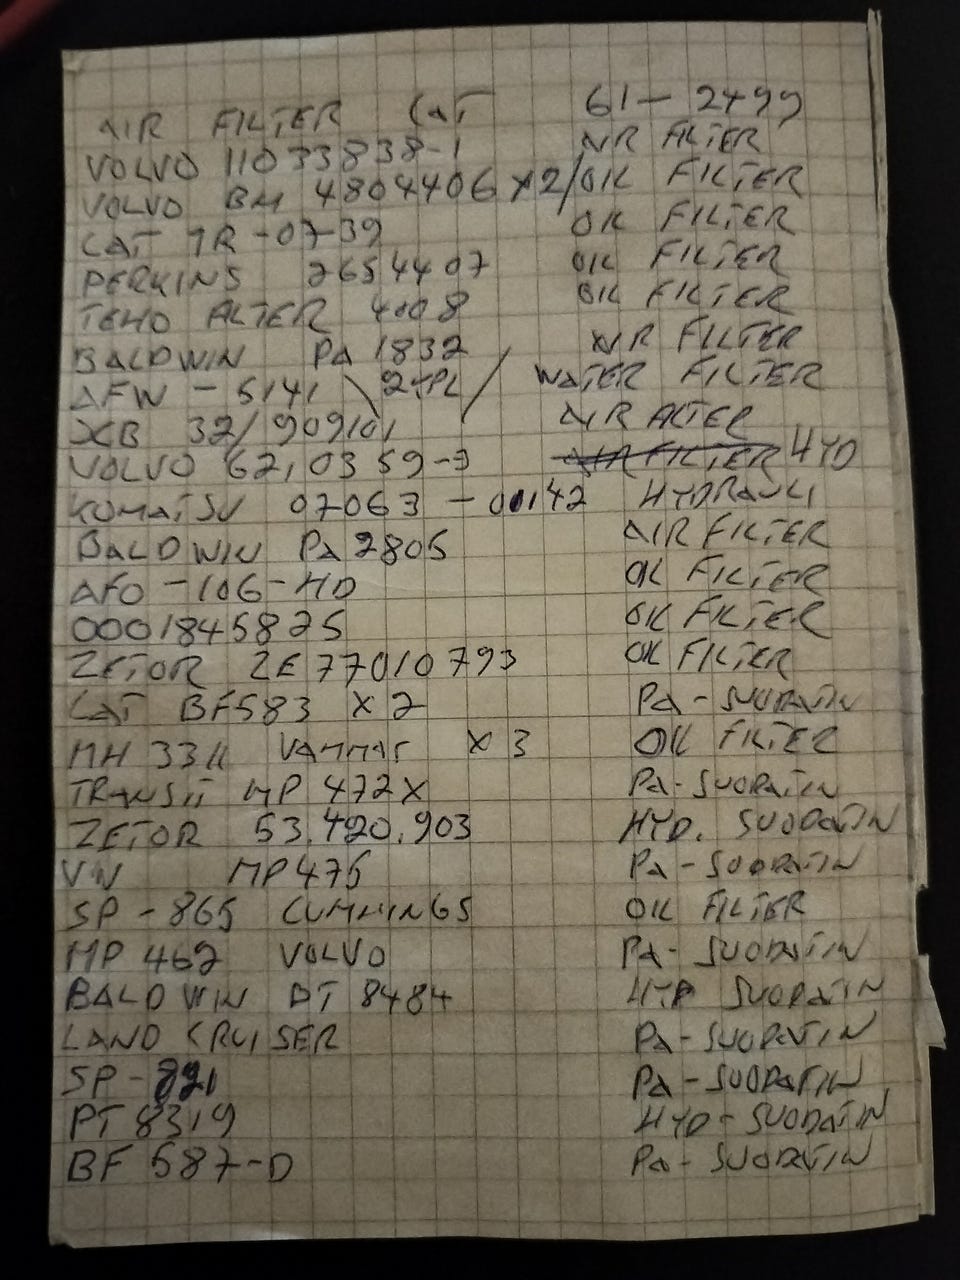 AIR FILTER CAT 61-2499
VOLVO 11033838-1 AIR FILTER
VOLVO BM 4804406 x2/OIL FILTER
CAT 1R-0739 OIL FILTER
PERKINS 2654407 OIL FILTER
TEHO FILTER 4008 OIL FILTER
BALDWIN PA 1832 AIR FILTER
AFW-5141 2KPL WATER FILTER
JCB 32/909101 AIR FILTER
VOLVO 6210359-9 AIR FILTER HYD
KOMATSU 07063-00142 HYDRAULI
BALDWIN PA 2805 AIR FILTER
AFO-106-HD OIL FILTER
0001845825 OIL FILTER
ZETOR ZE77010793 OIL FILTER
CAT BF583 x2 PA-SUODATIN
MH 33 VAMMAS x3 OIL FILTER
TRANSIT MP 472X PA-SUODATIN
ZETOR 53.420.903 HYD. SUODATIN
VW MP475 PA-SUODATIN
SP-865 CUMMINGS OIL FILTER
MP 462 VOLVO PA-SUODATIN
BALDWIN PT 8484 HYD SUODATIN
LAND CRUISER PA-SUODATIN
SP-821 PA-SUODATIN
PT 8319 HYD-SUODATIN
BF 587-D PA-SUODATIN